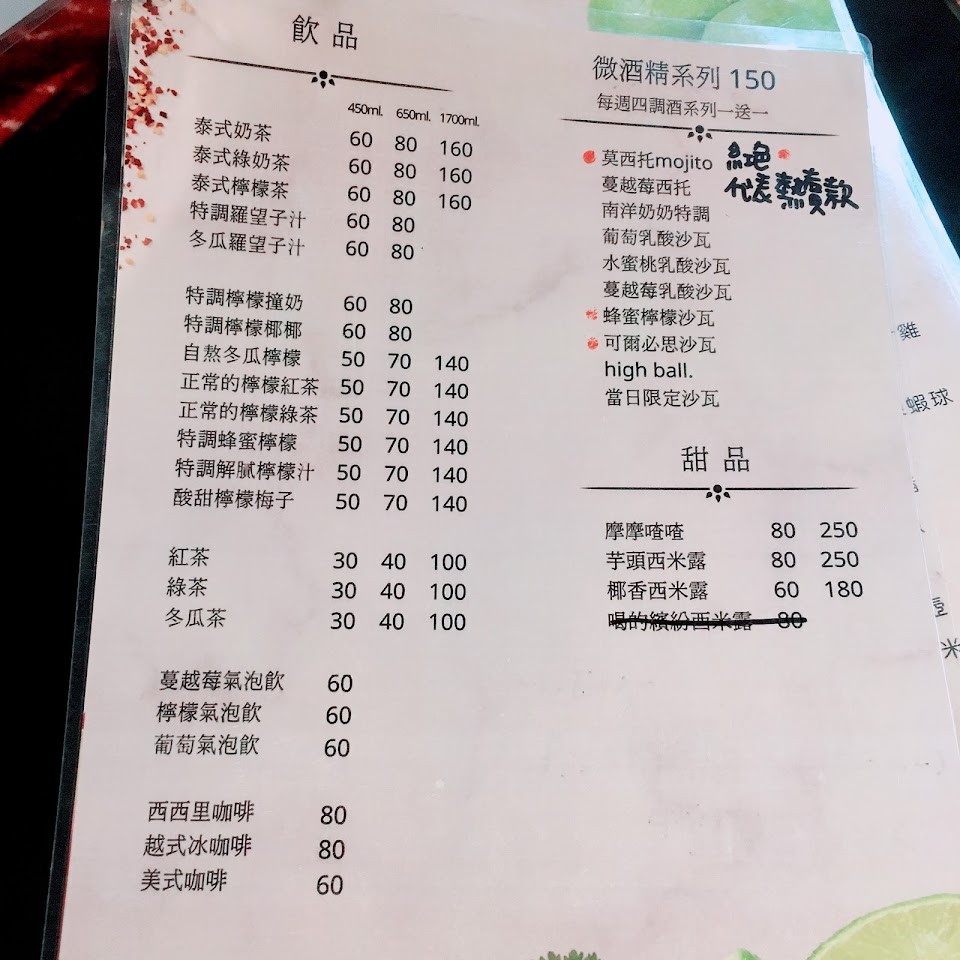 飲品
450ml. 650ml. 1700ml.
泰式奶茶 60 80 160
泰式綠奶茶 60 80 160
泰式檸檬茶 60 80 160
特調羅望子汁 60 80
冬瓜羅望子汁 60 80
特調檸檬撞奶 60 80
特調檸檬椰椰 60 80
自熬冬瓜檸檬 50 70 140
正常的檸檬紅茶 50 70 140
正常的檸檬綠茶 50 70 140
特調蜂蜜檸檬 50 70 140
特調解膩檸檬汁 50 70 140
酸甜檸檬梅子 50 70 140
紅茶 30 40 100
綠茶 30 40 100
冬瓜茶 30 40 100
蔓越莓氣泡飲 60
檸檬氣泡飲 60
葡萄氣泡飲 60
西西里咖啡 80
越式冰咖啡 80
美式咖啡 60
微酒精系列 150
每週四調酒系列一送一
莫西托mojito 絕
代表熱賣款
蔓越莓西托
南洋奶奶特調
葡萄乳酸沙瓦
水蜜桃乳酸沙瓦
蔓越莓乳酸沙瓦
蜂蜜檸檬沙瓦
可爾必思沙瓦
high ball.
當日限定沙瓦
甜品
摩摩喳喳 80 250
芋頭西米露 80 250
椰香西米露 60 180
喝的繽紛西米露 80
雞
蝦球
米